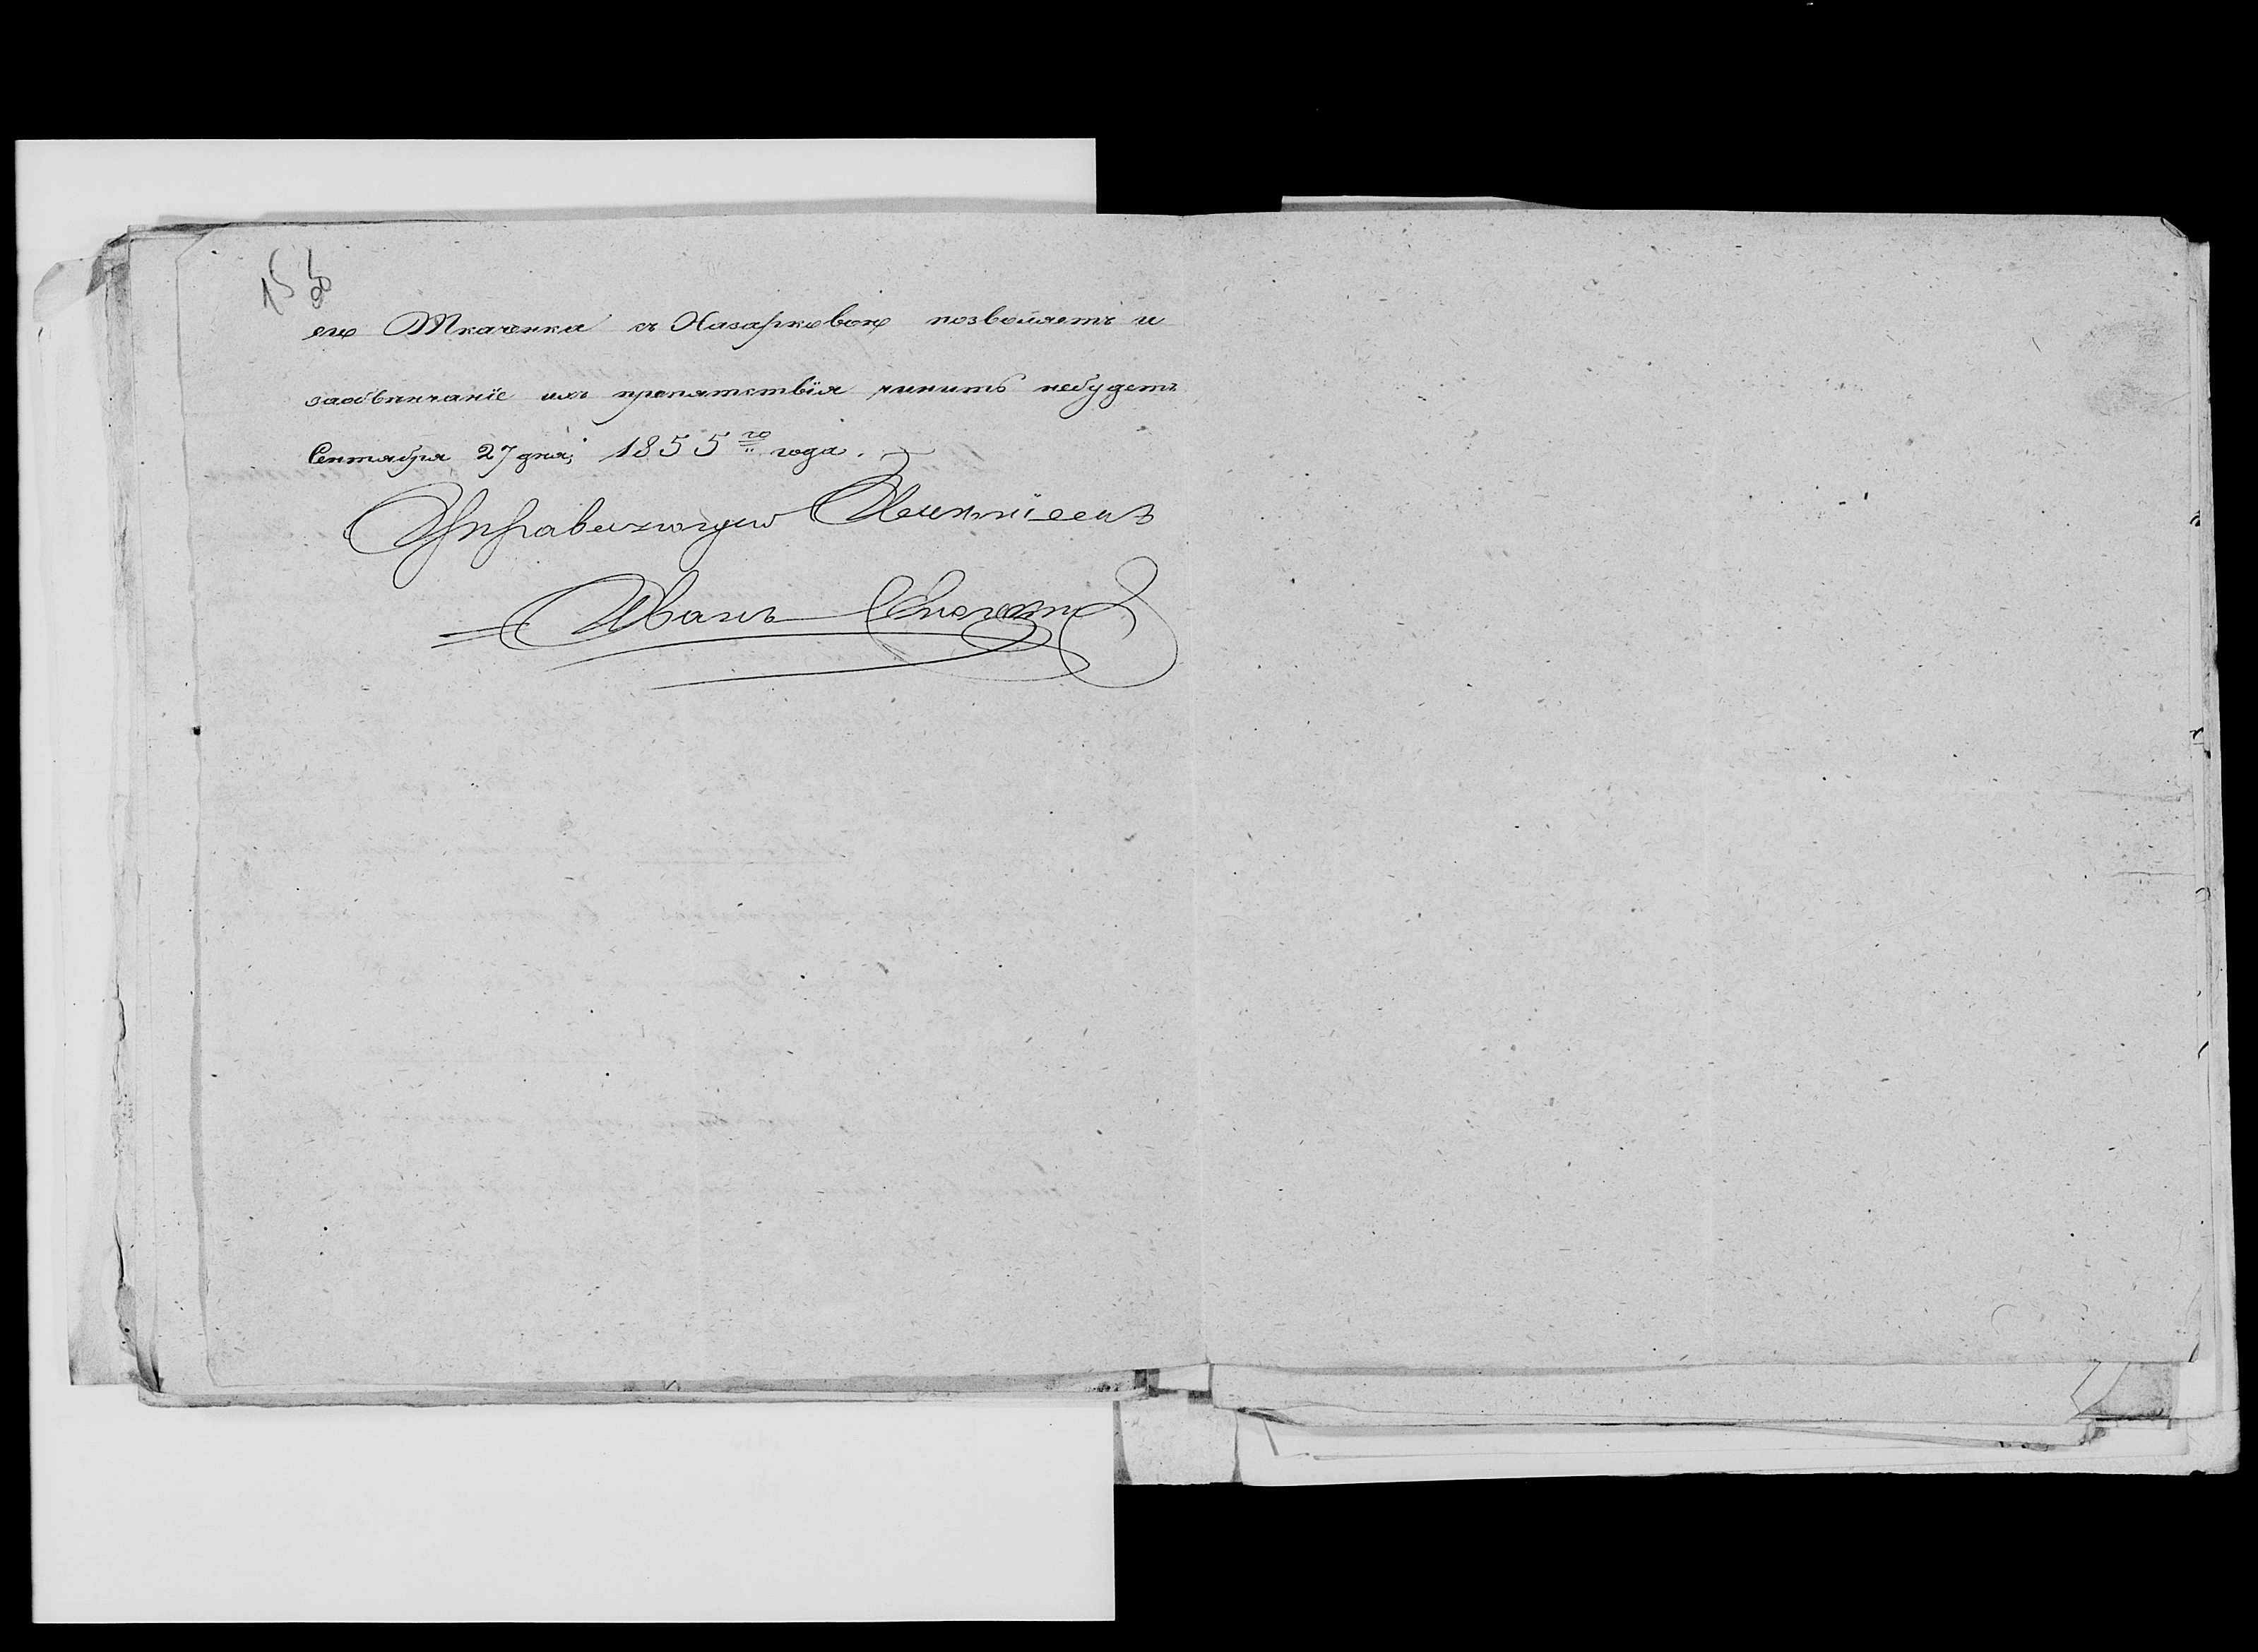 его Ткаченка съ Назарковою позволяетъ и
заобвѣнчаніе ихъ препятствія чинить небудетъ
Сентября 27 дня; 1855го года.
Управляющій Имѣніемъ
Иванъ